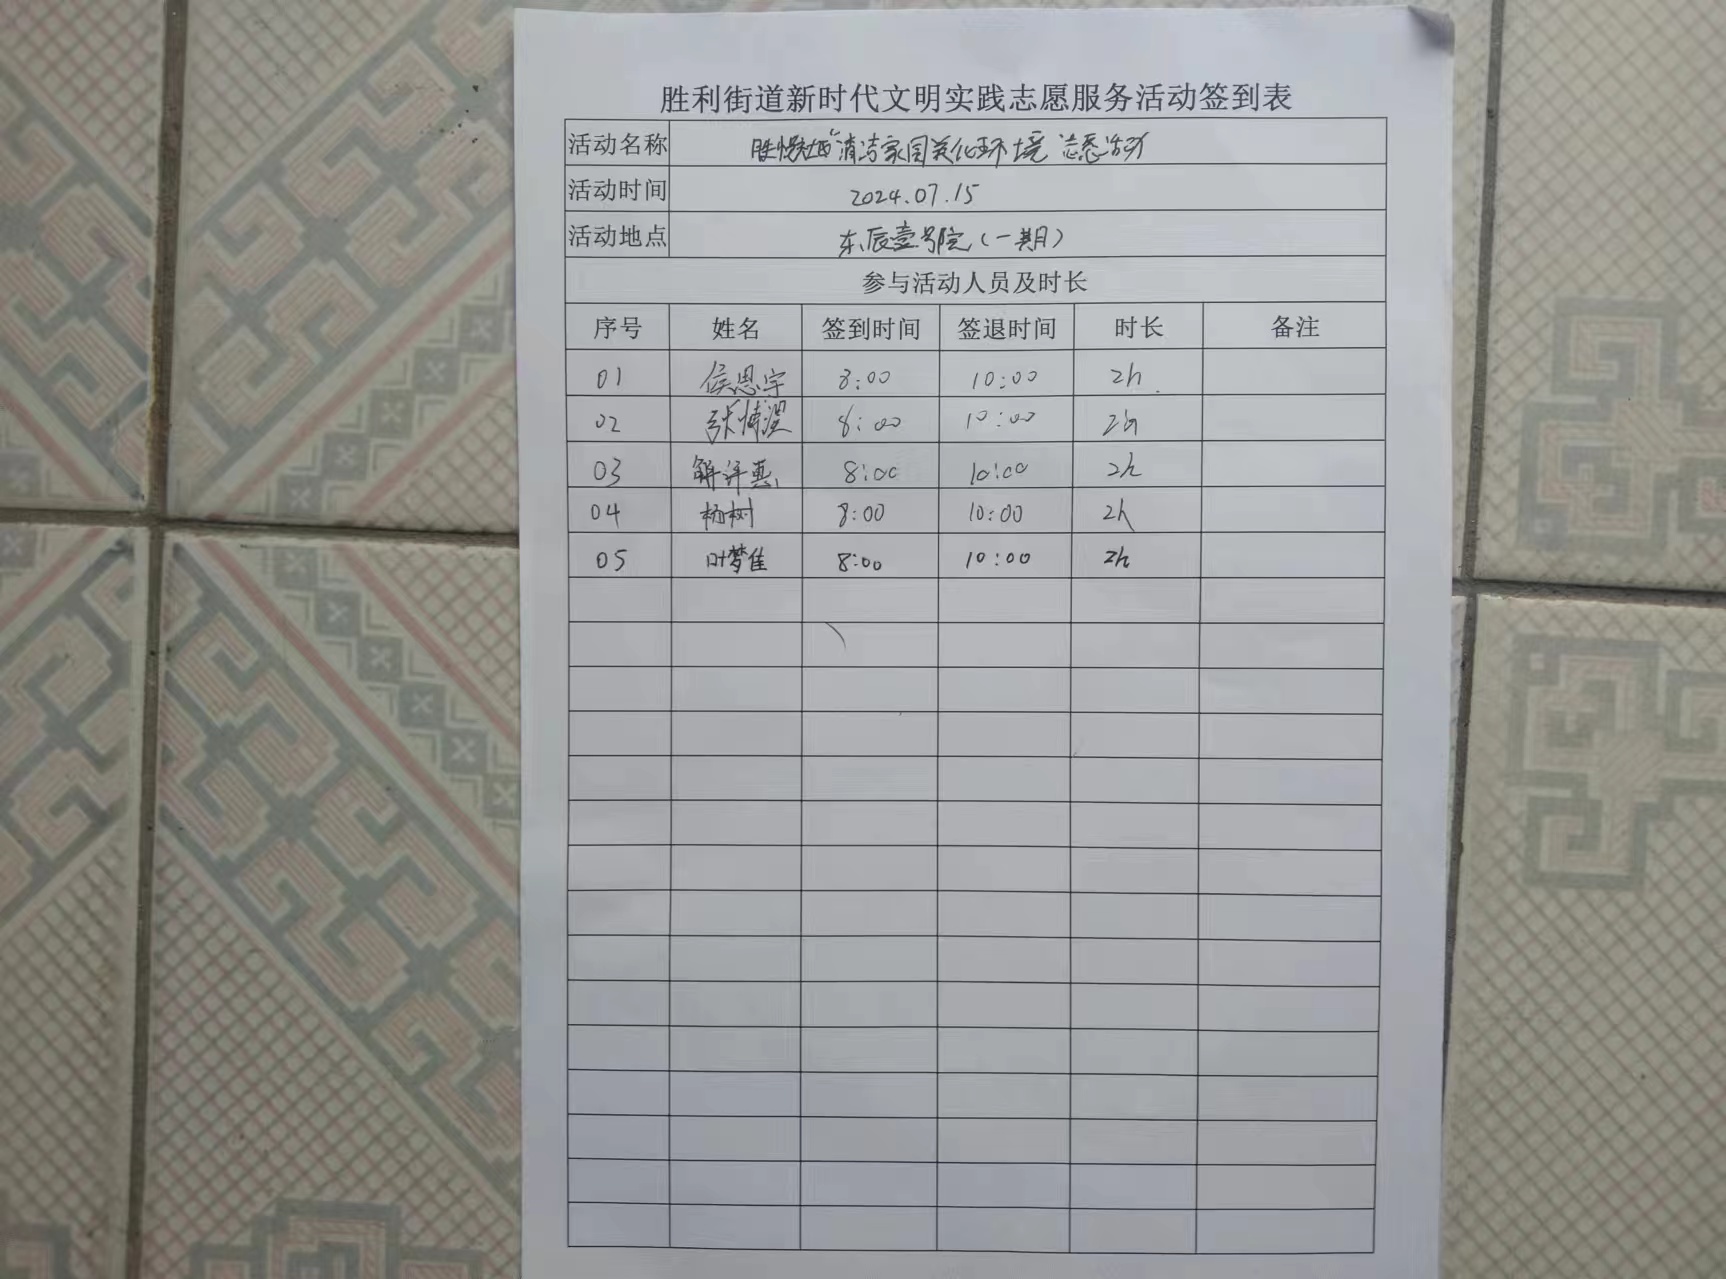 胜利街道新时代文明实践志愿服务活动签到表
活动名称 "清洁家园美化环境 志愿活动
活动时间 2024.07.15
活动地点 东辰壹号院(一期)
参与活动人员及时长
序号 姓名 签到时间 签退时间 时长 备注
01 侯思宇 8:00 10:00 2h
02 张 8:00 10:00 2h
03 解 8:00 10:00 2h
04 杨树 8:00 10:00 2h
05 叶梦佳 8:00 10:00 2h